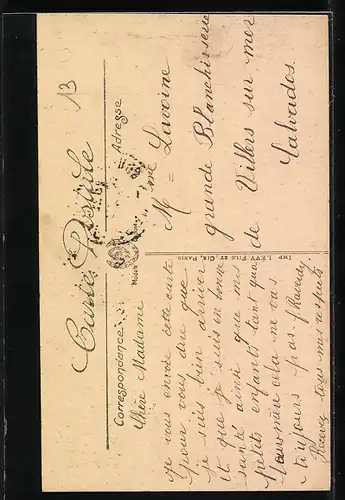 13
Carte Postale
Correspondance
Adresse
Chère Madame
je vous envoie cette carte
pour vous dire que
je suis bien arriver
et que je suis en bonne
santé ainsi que mes
petits enfants tant que
cela ne vas
toujours pas.
Recevez tous mes respects
IMP. LEVY FILS ET CIE, PARIS
Mme Lavoine
grande Blanchisserie
de Villers sur mer
Calvados.